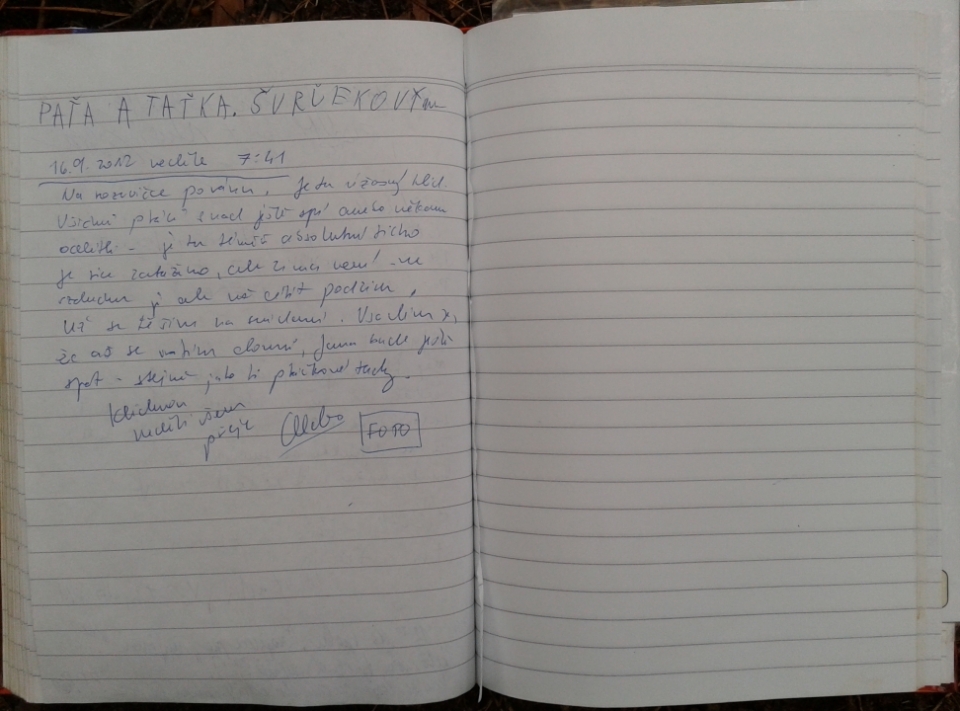 PAŤA A TAŤKA. ŠVRČEKOVÝ
16.9.2012 neděle 7:41
Na rozcvičce po ránu. Je tu úžasný klid.
Všichni ptáci snad ještě spí anebo někam
odletěli - je tu téměř absolutní ticho
je sice zataženo, ale zima není - ve
vzduchu je ale už cítit podzim.
Už se těším na snídani. Vsadím se,
že až se vrátím domů, Jana bude ještě
spát - stejně jako ti ptáčkové tady.
Klidnou
neděli všem
přeje
FOTO